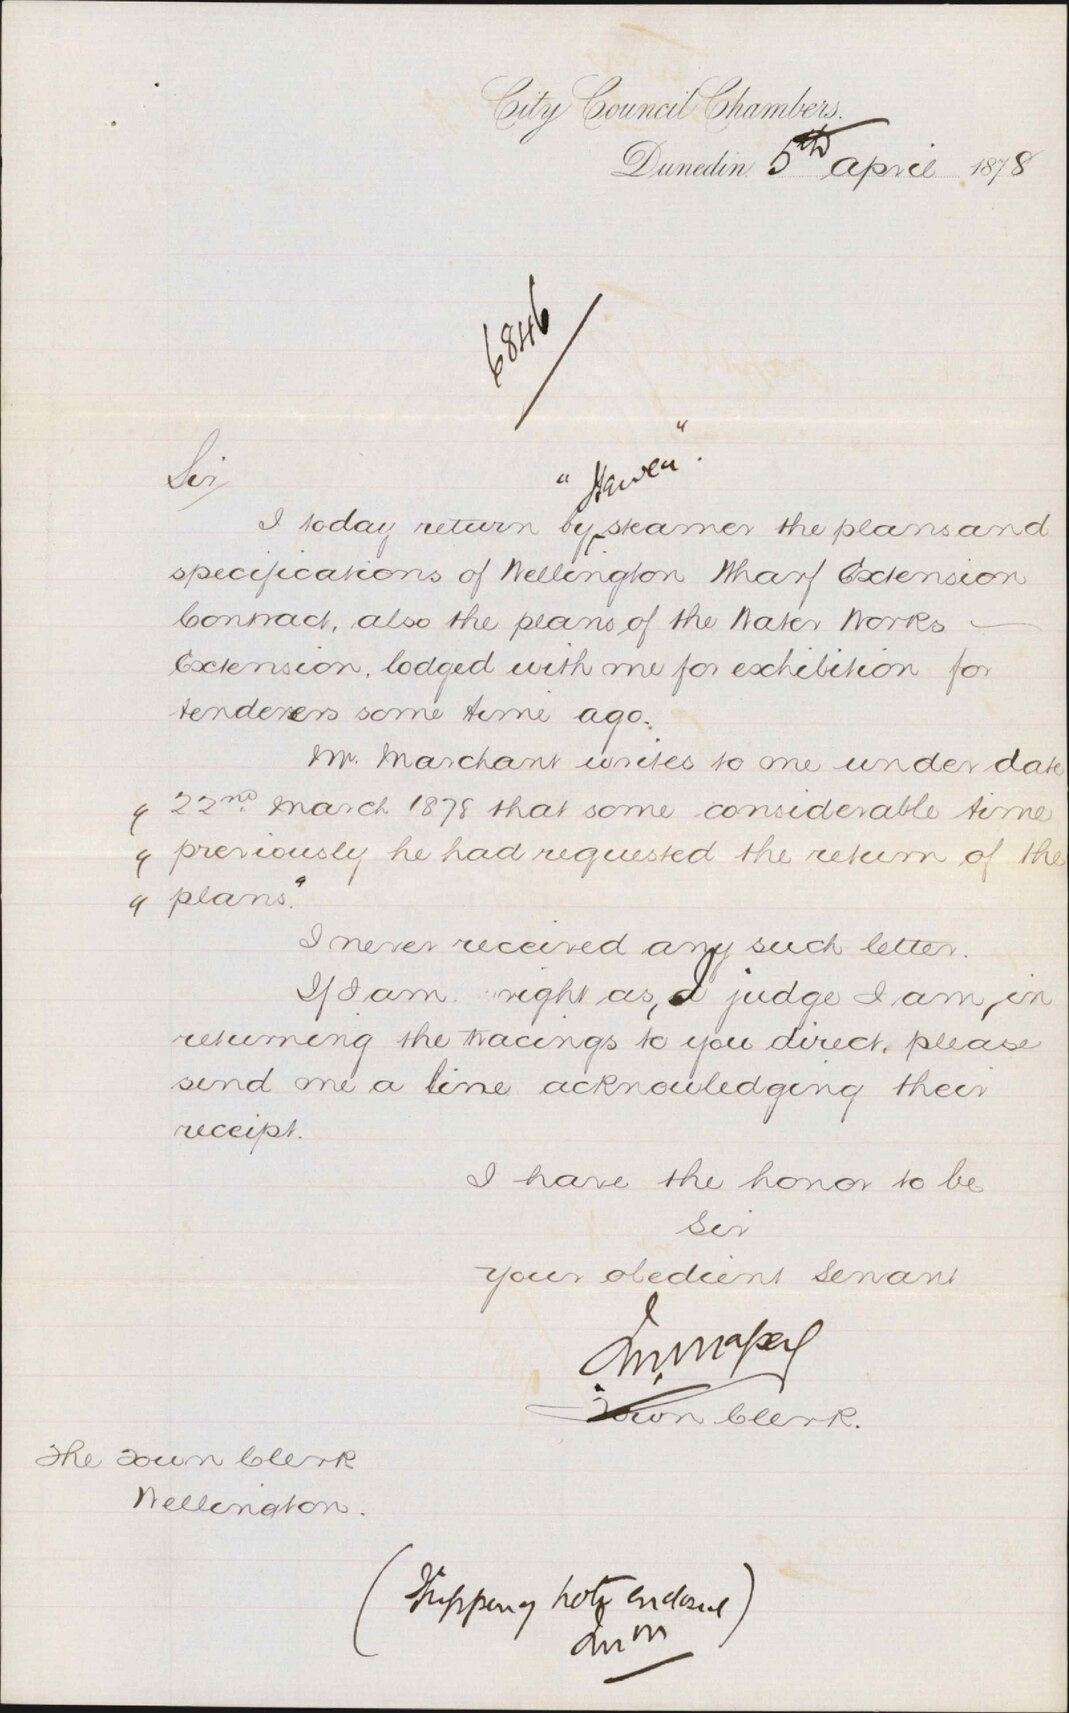 City Council Chambers.
Dunedin 5th April 1878
6846
Sir
"Hawea".
I today return by steamer the plans and
specifications of Wellington Wharf Extension
Contract, also the plans of the Water Works —
Extension, lodged with me for exhibition for
tenderers some time ago.
Mr. Marchant writes to me under date
" 22nd March 1878 that some considerable time
" previously he had requested the return of the
" plans."
I never received any such letter.
If I am right as, I judge I am, in
returning the tracings to you direct, please
send me a line acknowledging their
receipt.
I have the honor to be
Sir
Your obedient Servant
Town Clerk.
The Town Clerk
Wellington.
(Shipping note enclosed)